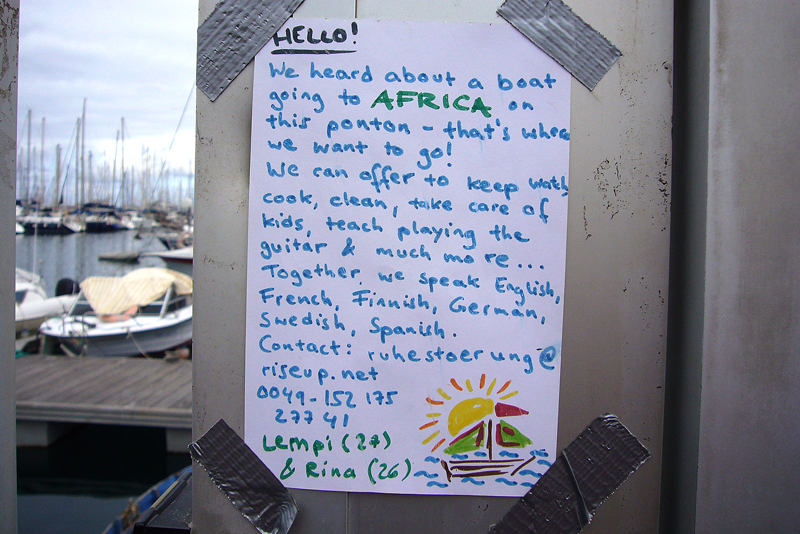 HELLO!
We heard about a boat
going to AFRICA on
this ponton - that's where
we want to go!
We can offer to keep watch,
cook, clean, take care of
kids, teach playing the
guitar & much more...
Together, we speak English,
French, Finnish, German,
Swedish, Spanish.
Contact: ruhestoerung@
riseup.net
0049-152 175
27741
Lempi (27)
& Rina (26)